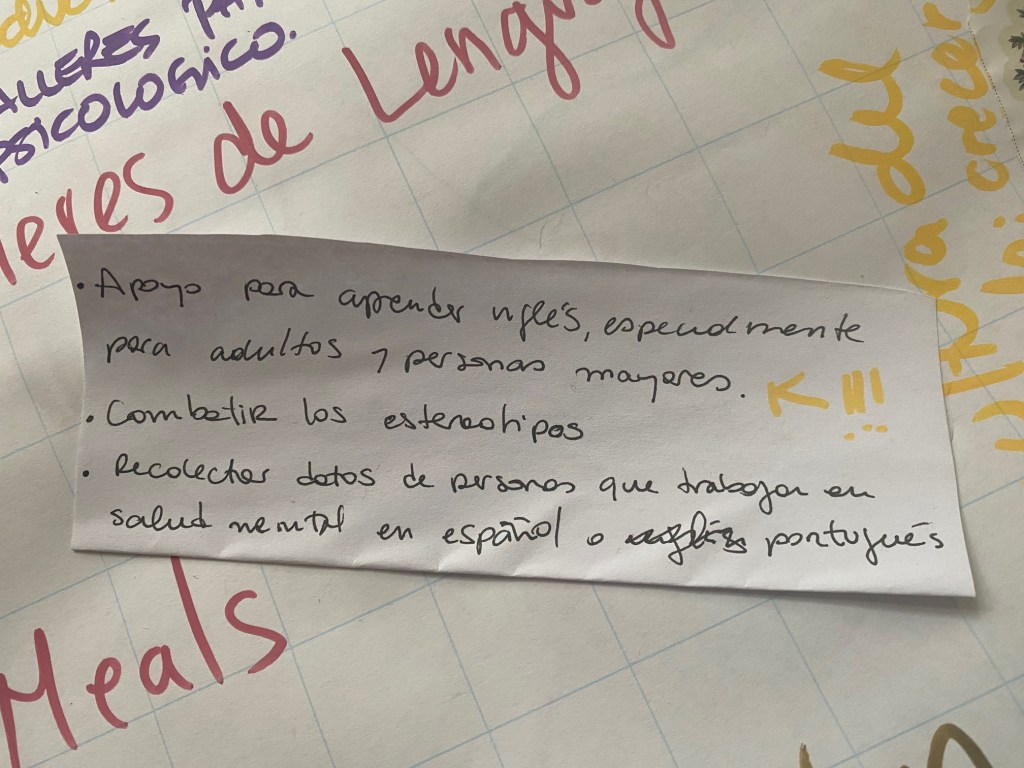 ALLERES PA
PSICOLOGICO.
leres de Lengu
• Apoyo para aprender inglés, especialmente
para adultos y personas mayores.
!!!
• Combatir los estereotipos
• Recolectar datos de personas que trabajan en
salud mental en español o portugués
Meals
ltura del
crecer